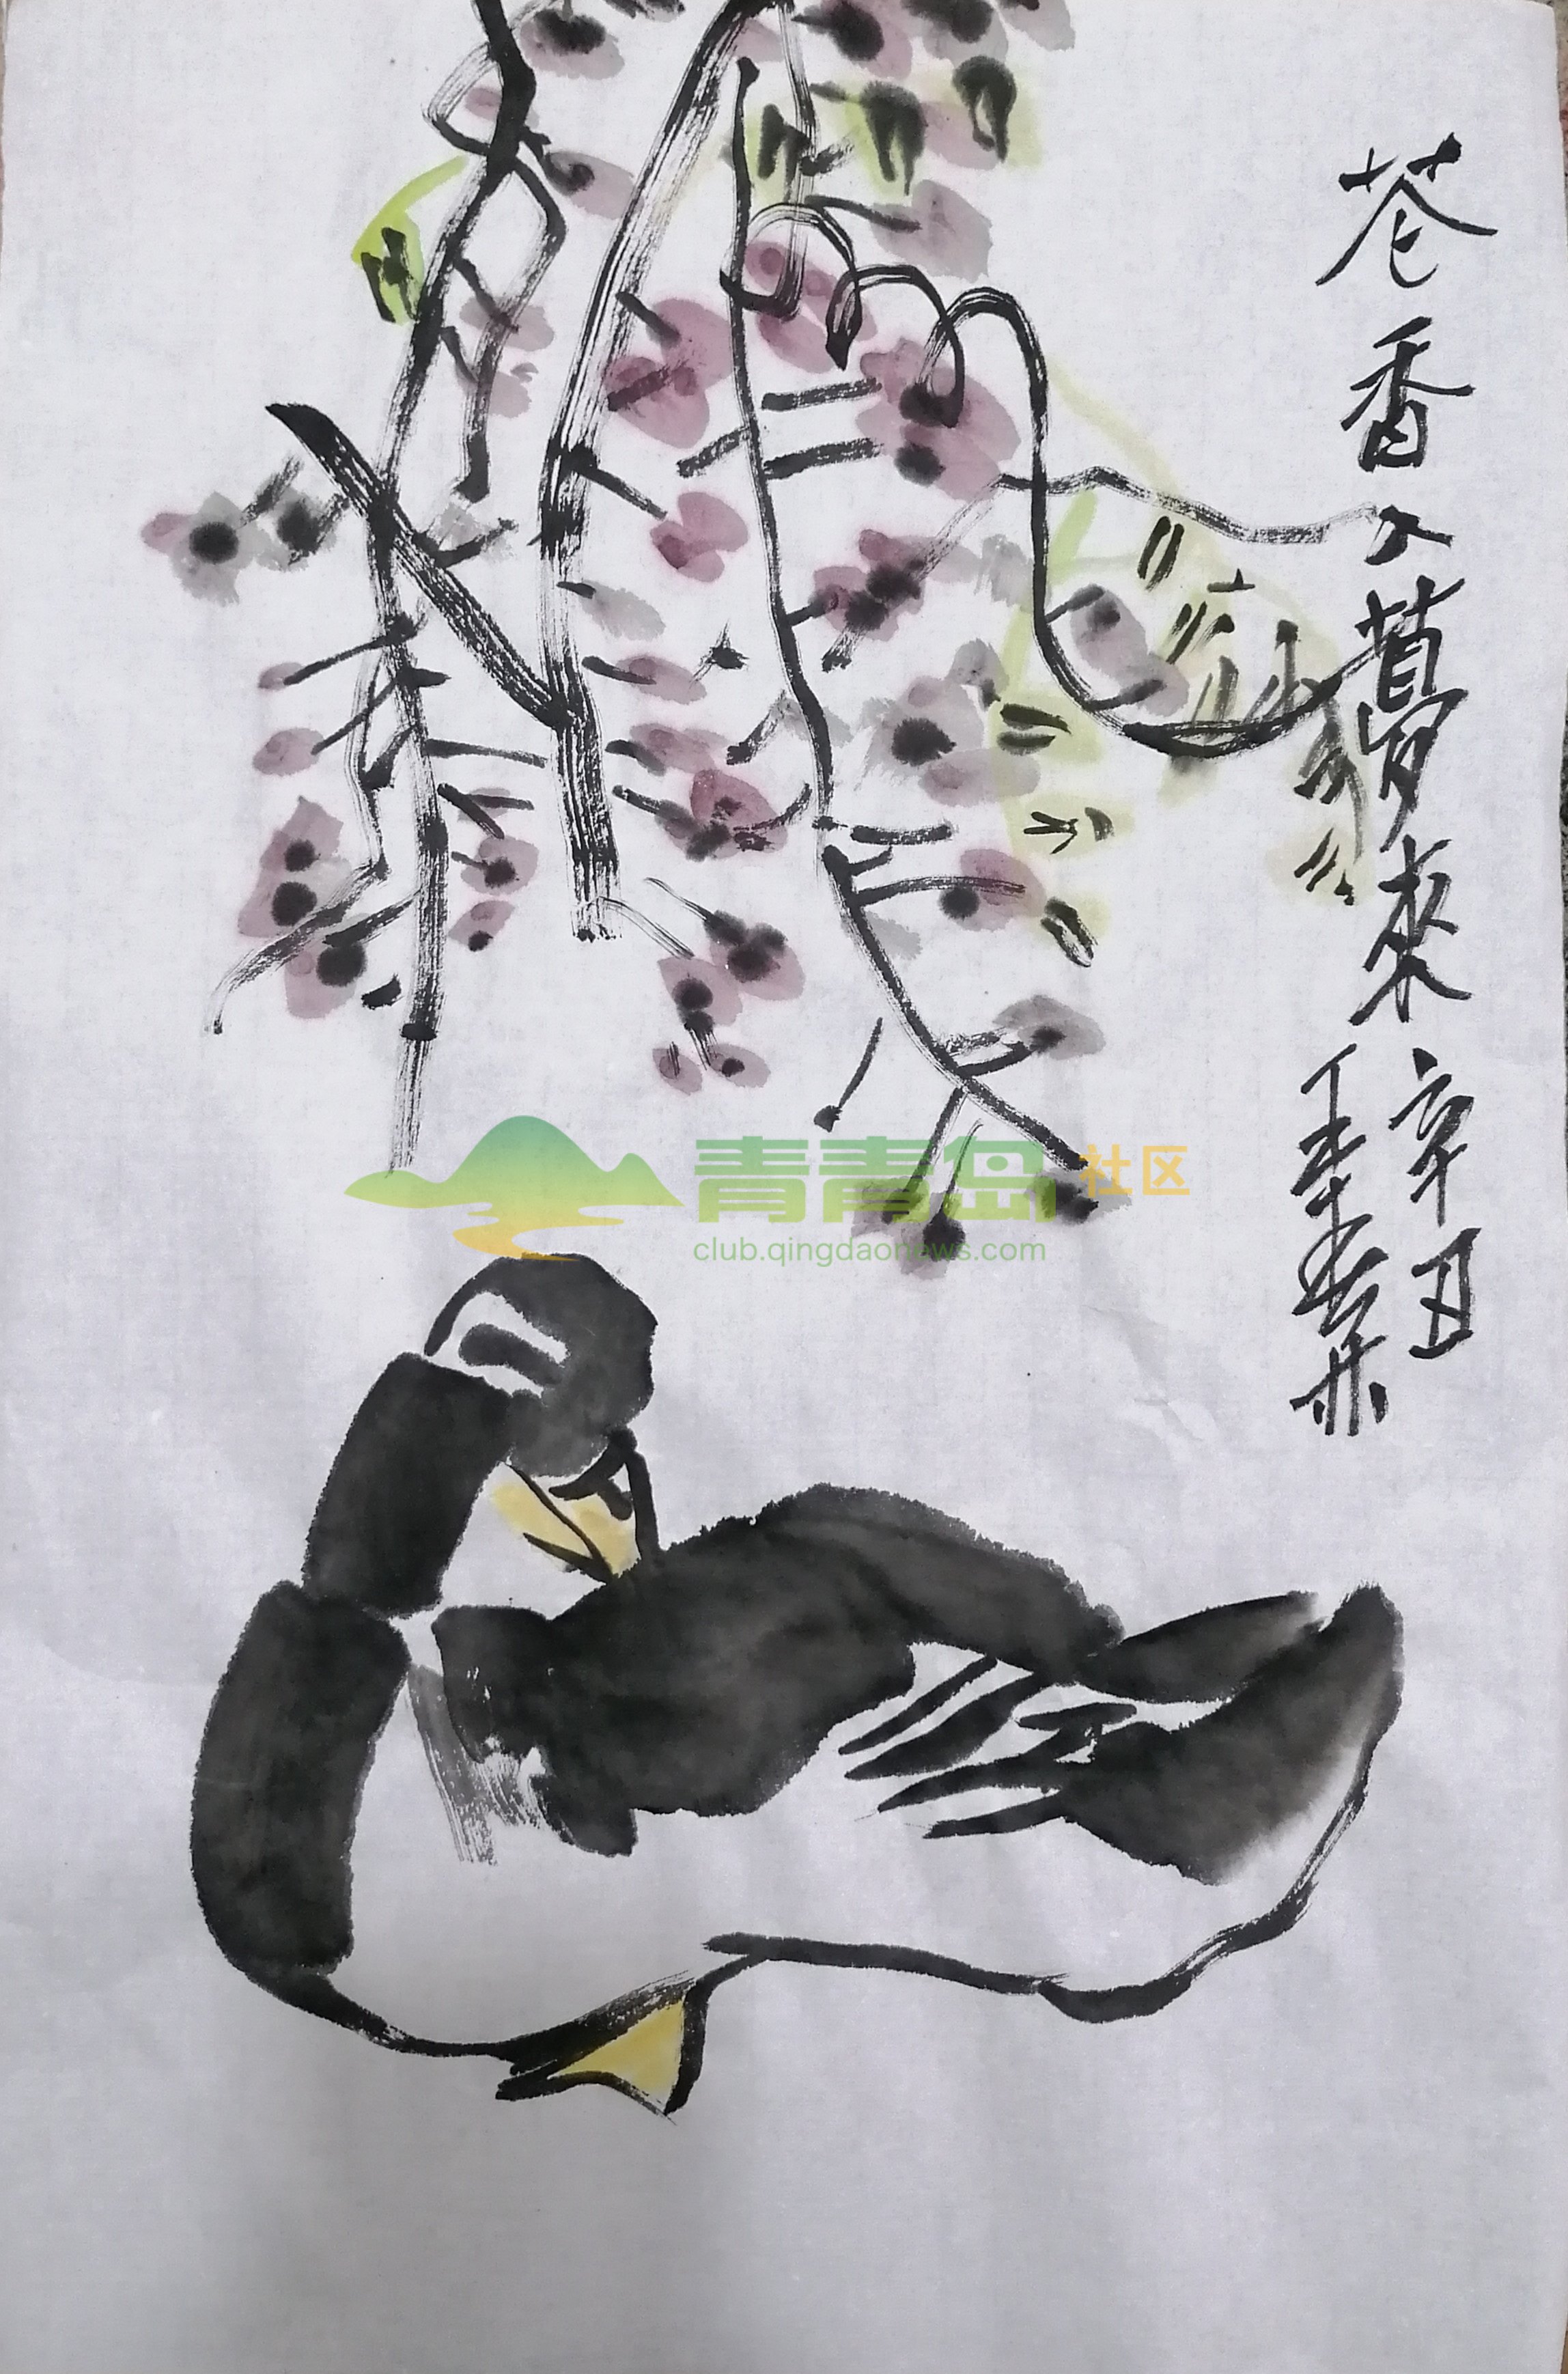 花香入夢來
辛丑
青青岛社区
club.qingdaonews.com